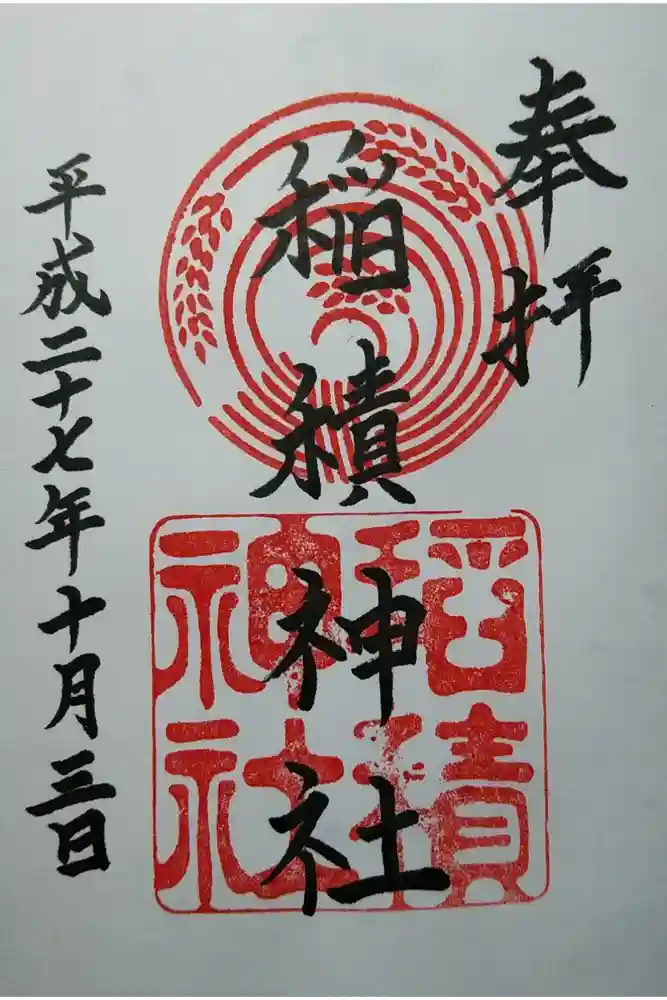 奉拝
稲積神社
稲積
神社
平成二十七年十月三日